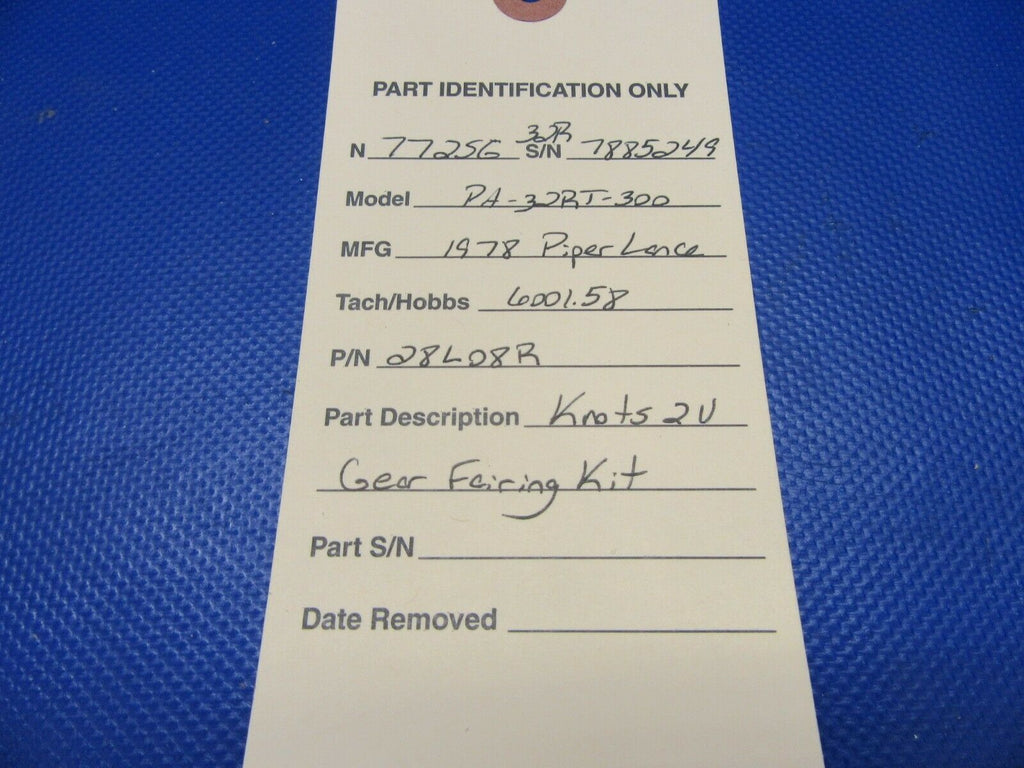 PART IDENTIFICATION ONLY
N 7725G 32R S/N 7885249
Model PA-32RT-300
MFG 1978 Piper Lance
Tach/Hobbs 6001.58
P/N 28L08R
Part Description Knots 2 U
Gear Fairing Kit
Part S/N
Date Removed